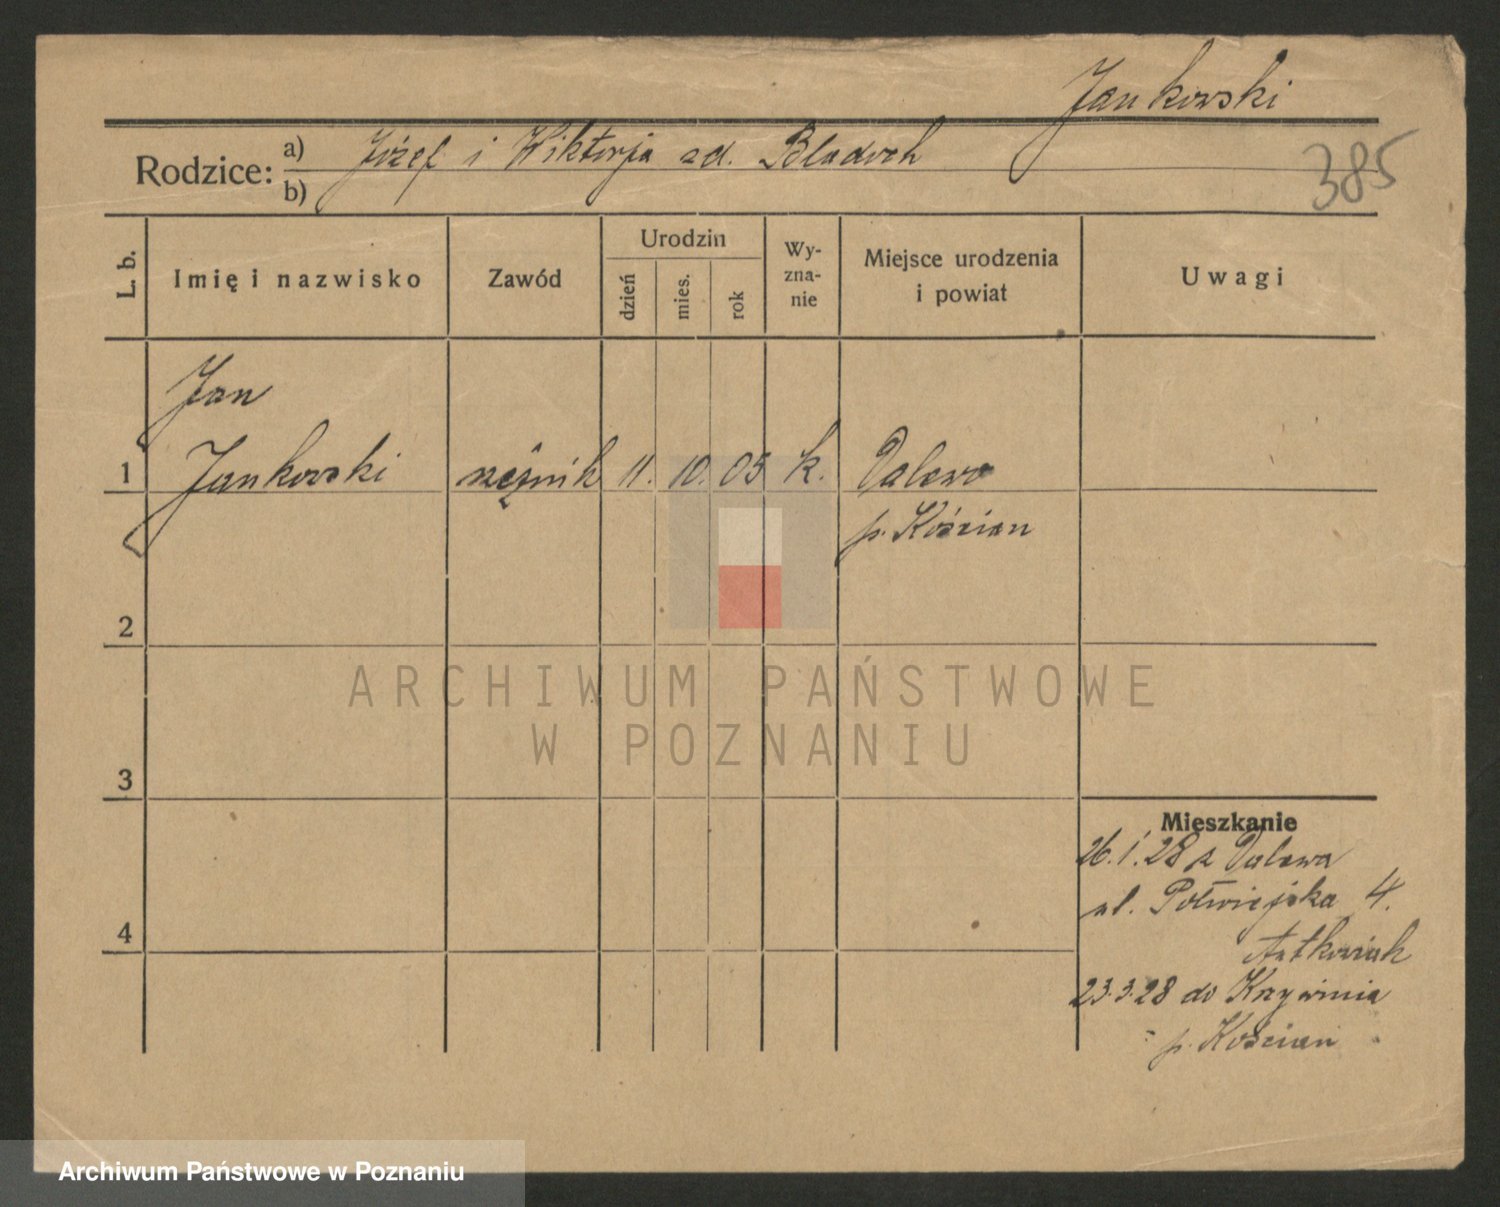 Jankowski
385
Rodzice: a) Józef i Wiktorja zd. Bladoch
b)
L. b.
Imię i nazwisko
Zawód
Urodzin
dzień
mies.
rok
Wy-
zna-
nie
Miejsce urodzenia
i powiat
Uwagi
Jan
1 Jankowski rzeźnik 11. 10. 05 k. Dalewo
p. Kościan
2
3
4
ARCHIWUM PAŃSTWOWE
W POZNANIU
Mieszkanie
26.1.28 z Dalewa
ul. Półwiejska 4.
23.3.28 do Krzywinia
p. Kościan
Archiwum Państwowe w Poznaniu